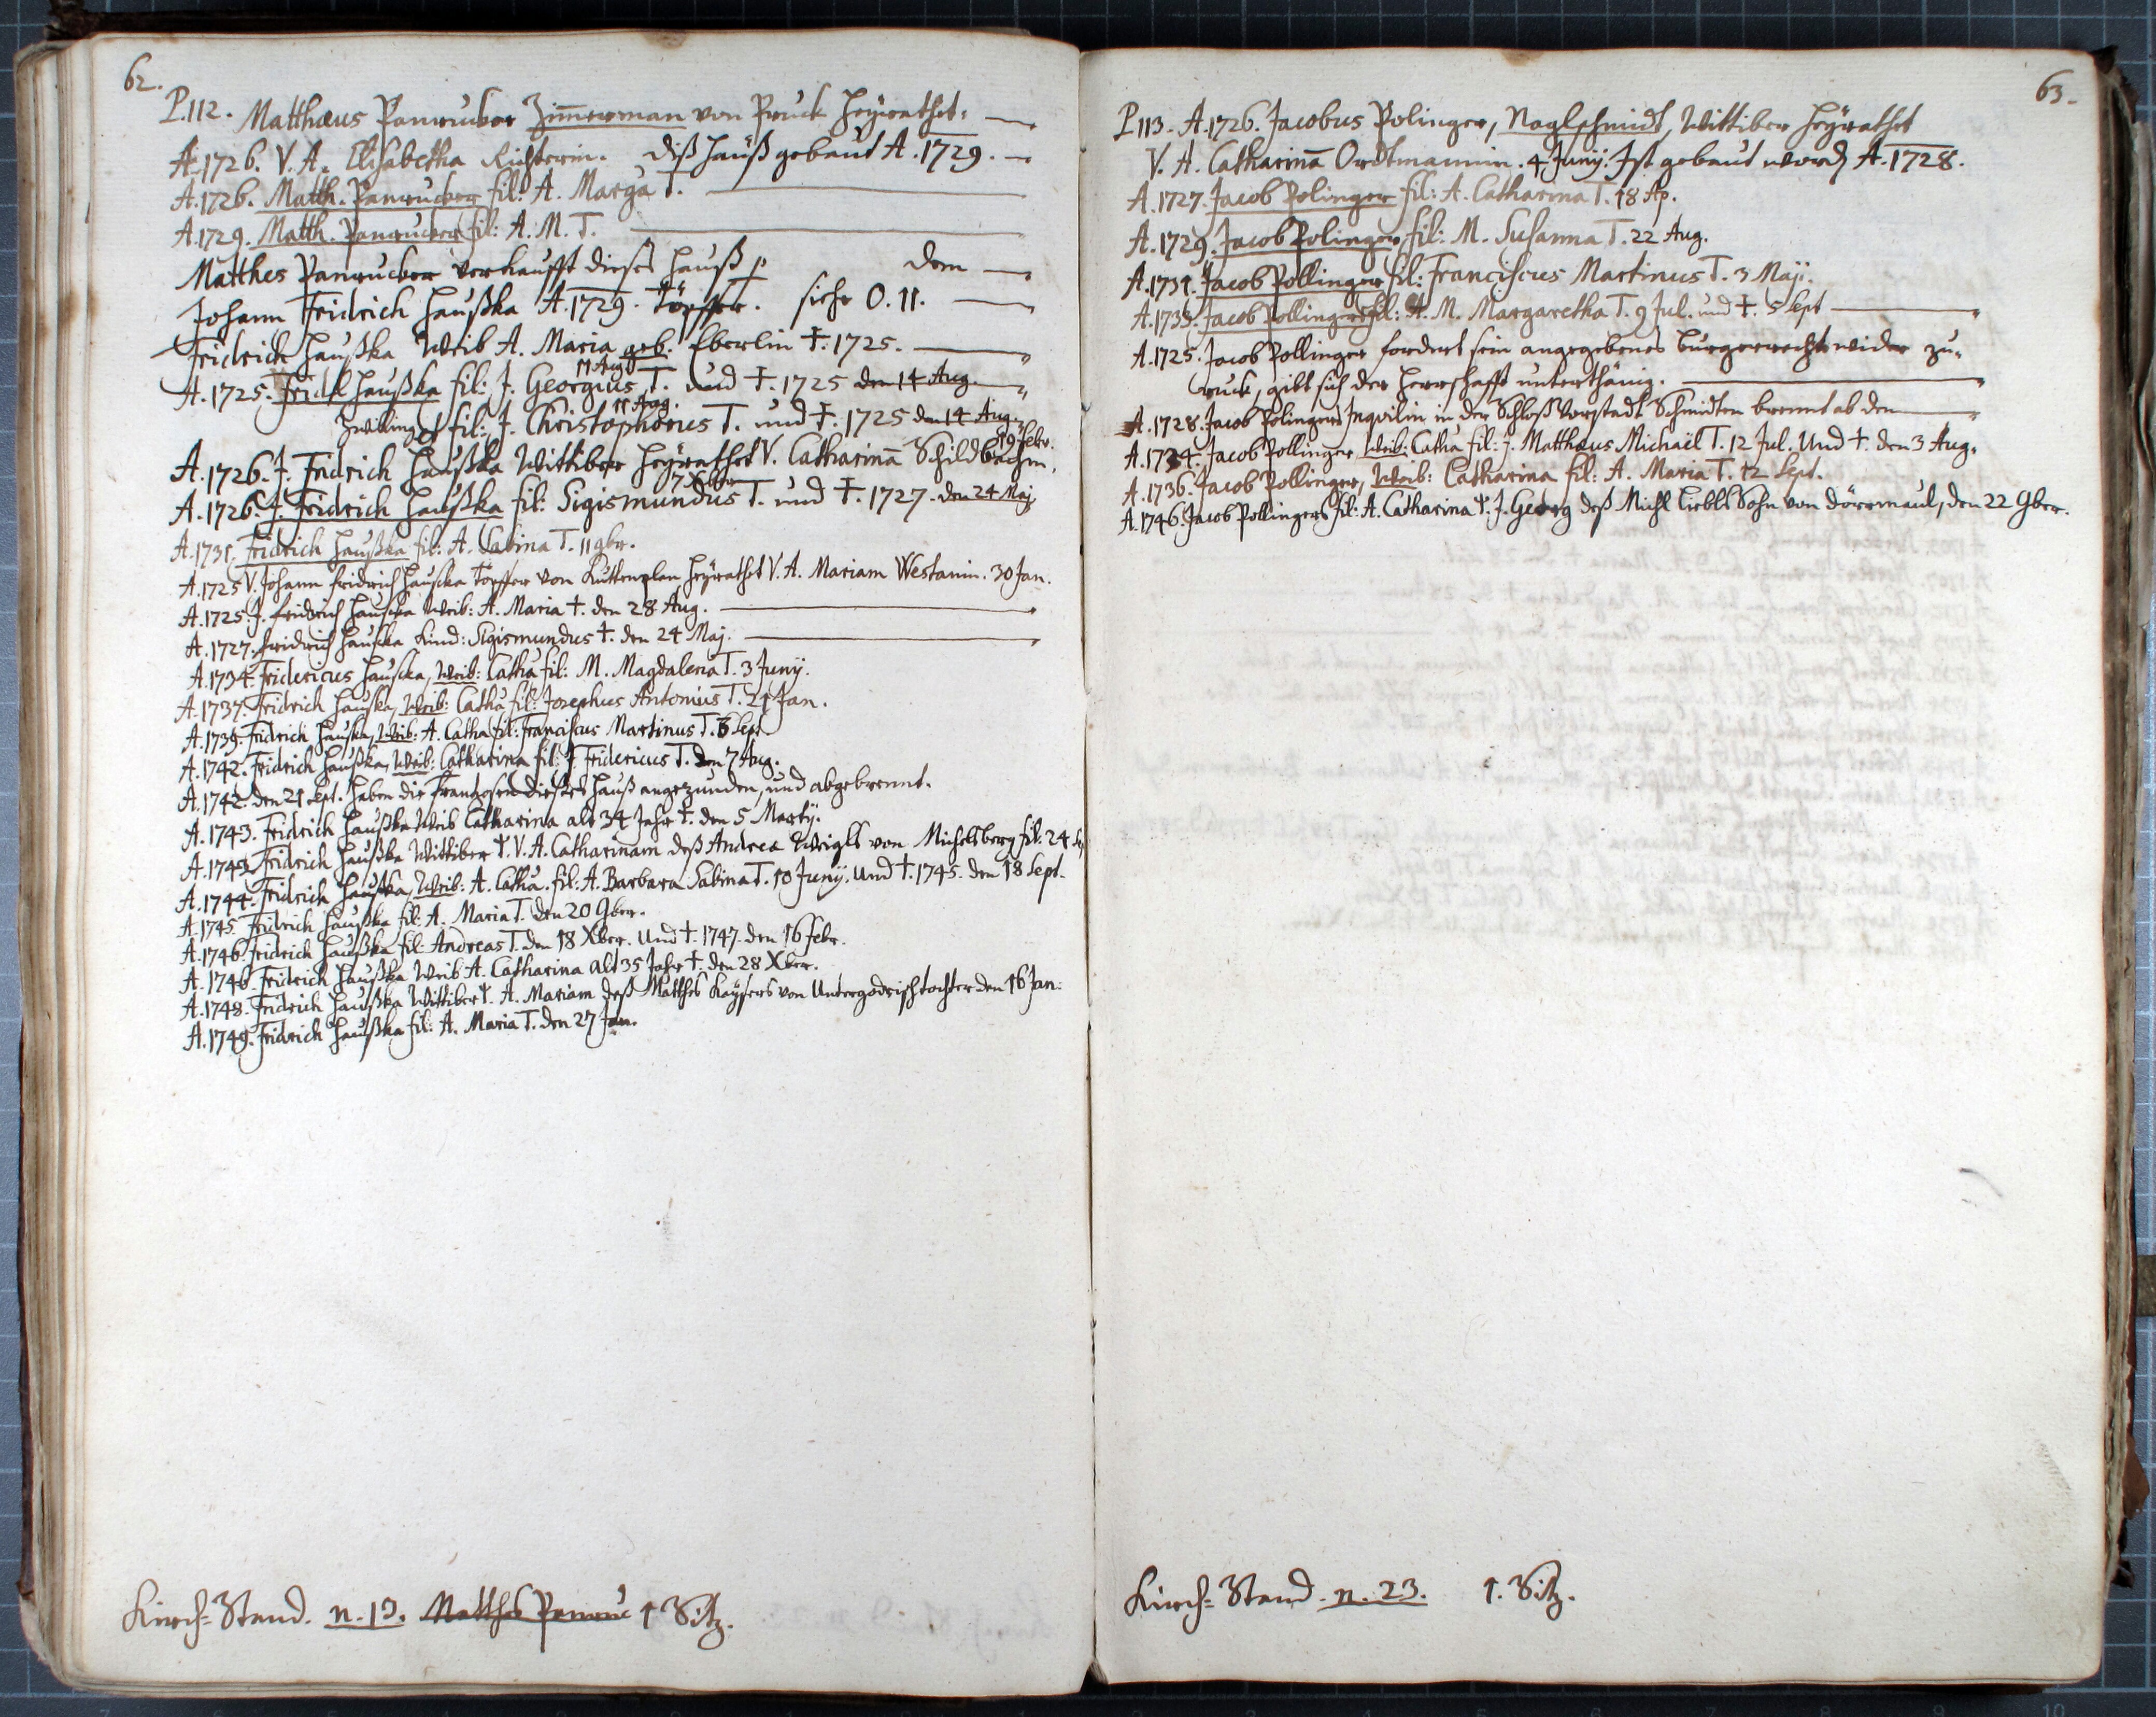 62.
P.112. Matthæus Panrucker Zim̄erman von Pruck heÿrathet:
A. 1726. V. A. Elisabetha Richterin. diß Hauß gebaut A. 1729.
A. 1726. Matth. Panrucker fil: A. Marga T.
A. 1729. Matth. Panrucker fil: A. M. T.
Matthes Panrucker verkaufft dieses Hauß p dem
Johann Fridrich Haußka A. 1729. Töpffer. siehe O. 11.
Fridrich Haußka Weib A. Maria geb. Eberlin †. 1725.
11 Aug
A. 1725. Fridl Haußka fil: J. Georgius T. und †. 1725 den 14 Aug.
11 Aug.
Zwilling et fil: J. Christophorus T. und †. 1725 den 14 Aug.
19 Febr.
A. 1726. J. Fridrich Haußka Wittiber heÿrathet V. Catharinā Schildbachin.
7 Xber
A. 1726. J. Fridrich Haußka fil: Sigismundus T. und †. 1727. den 24 Maj
A. 1731. Fridrich Haußka fil: A. Sabina T. 11 9br.
A. 1725 V. Johann fridrich Hauska Töpffer von Kuttenplan heÿrathet V. A. Mariam Westanin. 30 Jan.
A. 1725. J. fridrich Hauska Weib: A. Maria †. den 28 Aug.
A. 1727. fridrich Hauska Kind: Sigismundus †. den 24 Maj.
A. 1734. Fridericus Hauska, Weib: Catha fil: M. Magdalena T. 3 Junÿ.
A. 1737. Fridrich Hauska, Weib: Catha fil: Josephus Antonius T. 24 Jan.
A. 1739. Fridrich Hauska, Weib: A. Catha fil: Franciscus Martinus T. 8 Sept
A. 1742. Fridrich Haußka, Weib: Catharina fil: J Fridericus T. den 7 Aug.
A. 1742. den 21 Sept. haben die Frantzosen dieses Hauß angezunden, und abgebrennt.
A. 1743. Fridrich Haußka Weib Catharina alt 34 Jahr †. den 5 Martÿ.
A. 1743 Fridrich Haußka Wittiber †. V. A. Catharinam deß Andrea Weigls von Michelsberg fil: 24
A. 1744. Fridrich Haußka, Weib: A. Catha. fil: A. Barbara Sabina T. 10 Junÿ. Und †. 1745. den 18 Sept.
A. 1745. Fridrich Haußka fil: A. Maria T. den 20 9ber.
A. 1746 Fridrich Haußka fil: Andreas T. den 18 Xber. Und †. 1747. den 16 Febr.
A. 1746. Fridrich Haußka Weib A. Catharina alt 35 Jahr †. den 28 Xber.
A. 1748. Fridrich Haußka Wittiber †. A. Mariam deß Matthes Kaÿsers von Untergodrisch tochter den 16 Jan:
A. 1749. Fridrich Haußka fil: A. Maria T. den 27 Jan.
Kirch-Stand. n. 13. Matthes Panruc 1 Sitz.
63.
P. 113. A. 1726. Jacobus Polinger, Naglschmidt, Wittiber heÿrathet
V. A. Catharinā Ordtmannin. 4 Junÿ. Ist gebaut word A. 1728.
A. 1727. Jacob Polinger fil: A. Catharina T. 18 Ap.
A. 1729. Jacob Polinger, fil: M. Susanna T. 22 Aug.
A. 1731. Jacob Pollinger fil: Franciscus Martinus T. 3 Maÿ.
A. 1733. Jacob Pollinger fil: A. M. Margaretha T. 9 Jul. und †. 5 Sept
A. 1725. Jacob Pollinger fordert sein angegebenes burgerrecht wider zu-
ruck, gibt sich der Herrschafft unterthänig.
A. 1728. Jacob Polingers Inquilin in der Schloß Vorstadt Schmidten brennt ab den
A. 1734. Jacob Pollinger, Weib: Catha fil: J. Matthæus Michaël T. 12 Jul. Und †. den 3 Aug.
A. 1736. Jacob Pollinger, Weib: Catharina fil: A. Maria T. 12 Sept.
A. 1746 Jacob Pollingers fil: A. Catharina †. J. Georg deß Michl Liebls Sohn von Dörrmaul, den 22 9ber.
Kirch-Stand. n. 23. 1. Sitz.